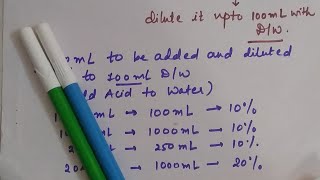 dilute it upto 100mL with
D/W.
mL to be added and diluted
to 100mL D/W
Acid to Water)
mL → 100mL → 10%
mL → 1000mL → 10%
mL → 250mL → 10%
mL → 1000mL → 20%